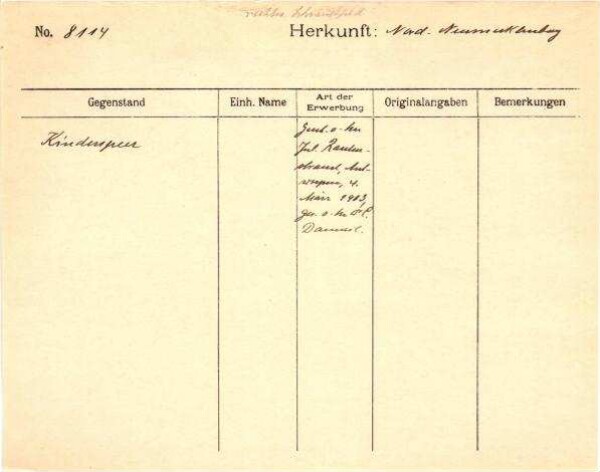 No. 8114
Herkunft: Nord-Neumecklenburg
Gegenstand
Einh. Name
Art der
Erwerbung
Originalangaben
Bemerkungen
Kinderspeer
Gesch. v. Hrn
Jul. Rauten-
strauch, Ant-
werpen, 4.
März 1913,
ges. v. Hrn